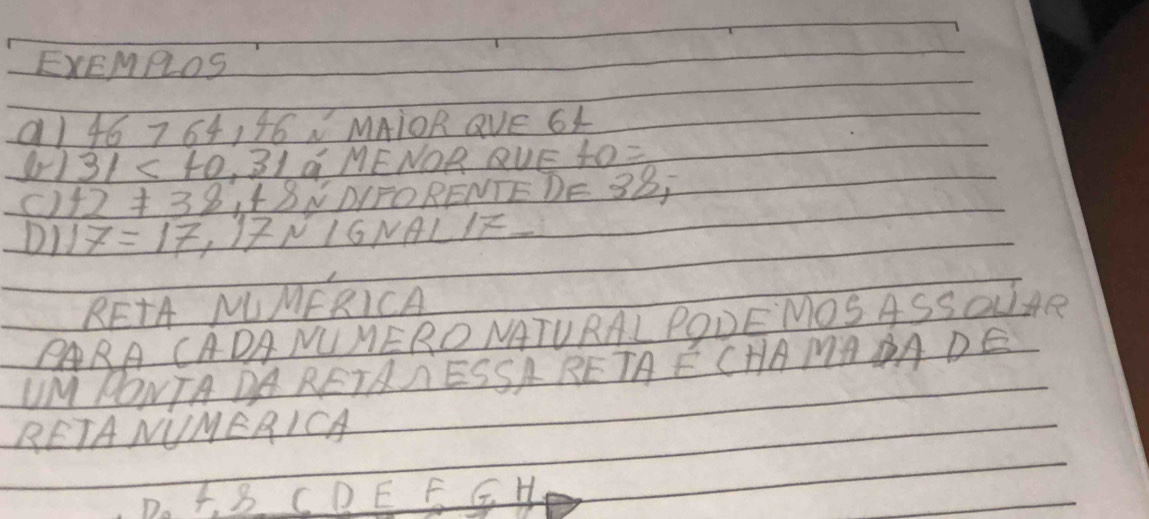 EXEMPLOS
a) 46 > 64, 46 Ń MAIOR QUE 64
b) 31 < 40, 31 á MENOR QUE 40 =
C) 42 ≠ 38, 48 Ń DIFORENTE DE 38;
D) 17 = 17, 17 N IGNAL 17 -
RETA NUMÉRICA
PARA CADA NUMERO NATURAL PODEMOS ASSOUAR
UM PONTA DA RETA ESSA RETA É CHAMADA DE
RETA NUMERICA
C D E F G H